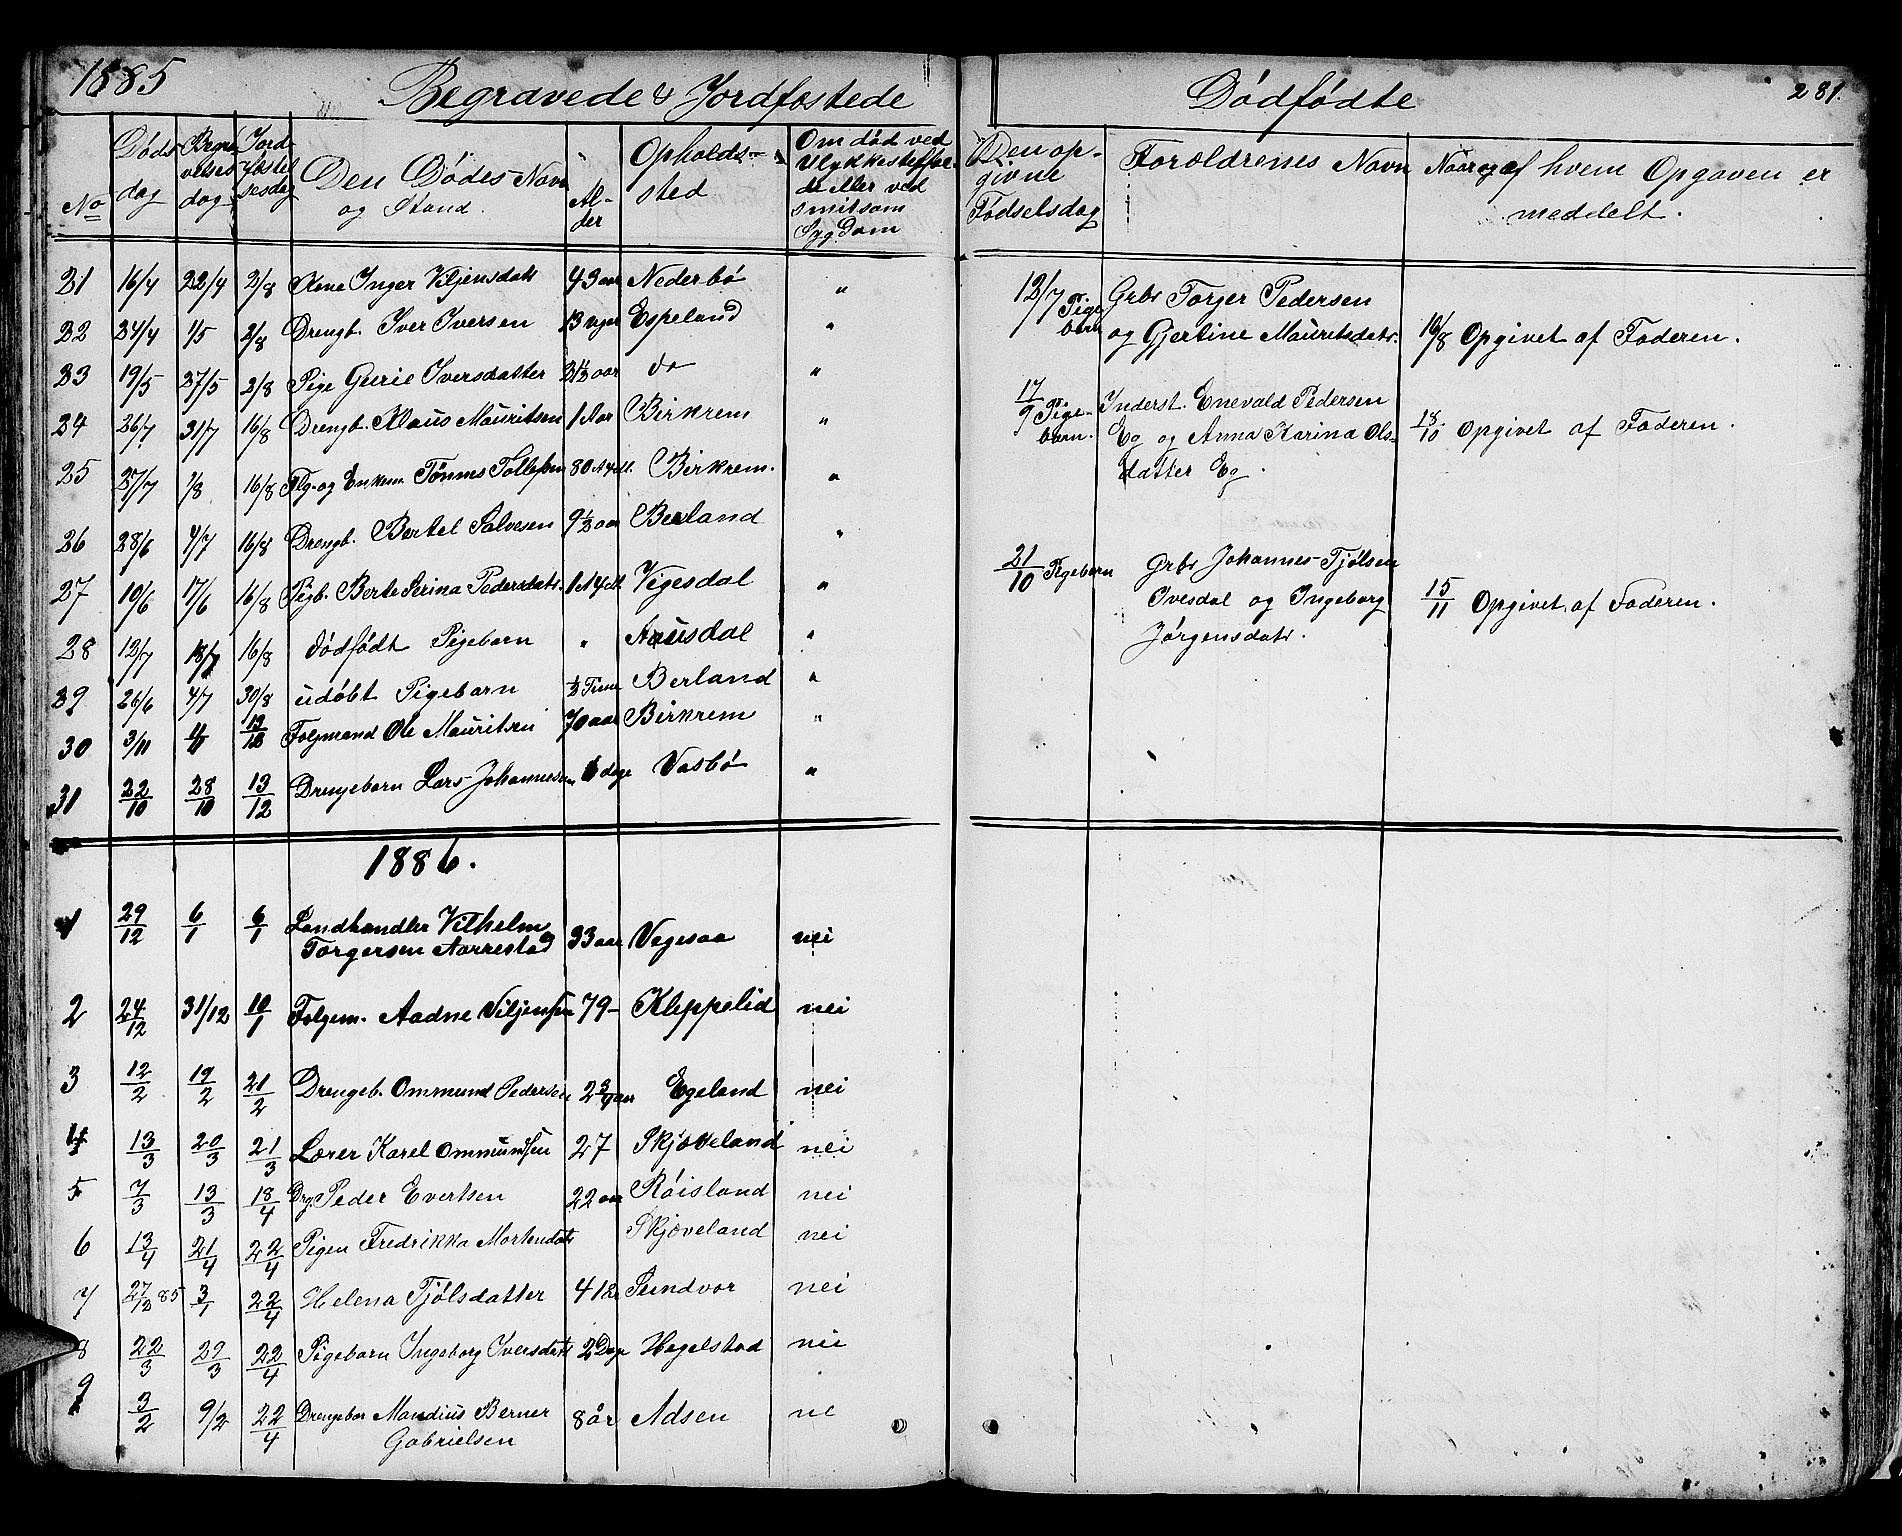 1885
Begravede & Jordfæstede
Dødfødte
281.
No
Døds-
dag
Begra-
velses
dag
Jord-
sesdag
Den Dødes Navn
og Stand.
Al-
der
Opholds-
sted
Om død ved
Ulykkestilfæl-
de eller ved
smitsom
Sygdom
Den op-
givne
Fødselsdag
Forældrenes Navn
Naar og af hvem Opgaven er
meddelt.
21 16/4 22/4 2/8 Inger Viljensdatr 43 aar Nederbø "
22 24/4 1/5 2/8 Drengb. Iver Iversen 13 uger Espeland "
23 19/5 27/5 2/8 Pige Gurie Iversdatter 2 1/2 aar do "
24 26/7 31/7 16/8 Drengb. Klaus Mauritsen 1 Aar Birkrem "
25 27/7 1/8 16/8 Flg. og Enkem Tønnes Tollefsen 80 Birkrem. "
26 28/6 4/7 16/8 Drengb. Bertel Salvesen 9 1/2 aar Berland "
27 10/6 17/6 16/8 Pigb. Berte Serina Pedersdatr. 1 Vigesdal "
28 12/7 18/7 16/8 dødfødt Pigebarn " Ausdal "
29 26/6 4/7 30/8 udøbt Pigebarn 1/2 Time Berland "
30 3/11 Folgmand Ole Mauritsen 70 aar Birkrem "
31 22/10 28/10 13/12 Drengebarn Lars Johannesen 6 dage Vasbø "
12/7 Pige
barn
Grbr Torger Pedersen
og Gjertine Mauritsdatr.
16/8 Opgivet af Faderen.
17/9 Pige-
barn.
Inderst. Enevald Pedersen
Eg og Anna Karina Ols-
datter Eg.
18/10 Opgivet af Faderen.
21/10 Pigebarn
Grbr Johannes Tjølsen
Ivesdal og Ingeborg
Jørgensdatr.
15/11 Opgivet af Faderen.
1886.
1 29/12 6/1 6/1 Landhandler Vilhelm
Torgersen Aarrestad 33 aar Vegesaa nei
2 24/12 31/12 10/1 Folgem. Aadne Viljensen 79- Kleppelid nei
3 12/2 19/2 21/2 Drengeb. Ommund Pedersen 2 3/4 aar Egeland nei
4 13/3 20/3 21/3 Lærer Karel Ommundsen 27 Skjæveland nei
5 7/3 13/3 18/4 Drg. Peder Evertsen 22 aar Røisland nei
6 13/4 21/4 22/4 Pigen Fredrikka Mortensdatr Skjæveland nei
7 27/12 85 3/1 22/4 Helena Tjølsdatter 41 år Sundvor nei
8 22/3 29/3 22/4 Pigebarn Ingeborg Iversdatr 2 Dage Hegelstad nei
9 3/2 9/2 22/4 Drengebar Mandius Berner
Gabrielsen 8 år Adsen ne